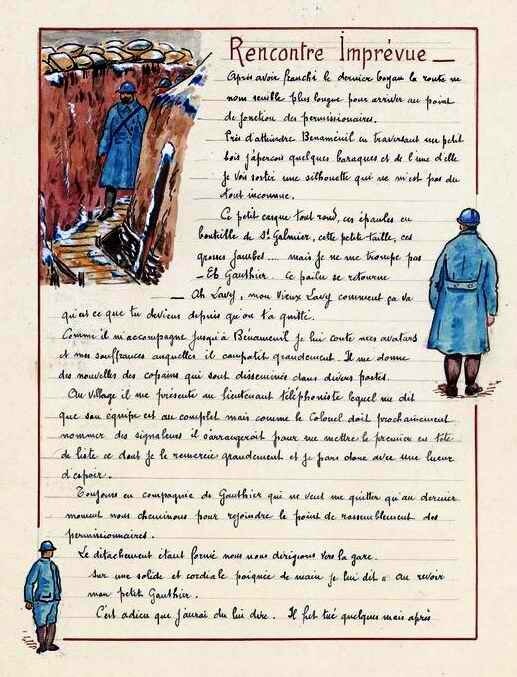 Rencontre Imprévue —
Après avoir franchi le dernier boyau la route ne
nous semble plus longue pour arriver au point
de jonction des permissionnaires.
Près d'atteindre Benaménil en traversant un petit
bois j'aperçois quelques baraques et de l'une d'elle
je vois sortir une silhouette qui ne m'est pas du
tout inconnue.
Ce petit casque tout rond, ces épaules en
bouteille de St Galmier, cette petite taille, ces
grosses jambes.... mais je ne me trompe pas
— Eh Gauthier. Ce poilu se retourne
— Ah Lavy, mon vieux Lavy comment ça va
qu'est ce que tu deviens depuis qu'on t'a quitté.
Comme il m'accompagne jusqu'à Bénaménil je lui conte mes avatars
et mes souffrances auxquelles il compatit grandement. Il me donne
des nouvelles des copains qui sont disséminés dans divers postes.
Au village il me présente au lieutenant téléphoniste lequel me dit
que son équipe est au complet mais comme le Colonel doit prochainement
nommer des signaleurs il s'arrangerait pour me mettre le premier en tête
de liste ce dont je le remercie grandement et je pars donc avec une lueur
d'espoir.
Toujours en compagnie de Gauthier qui ne veut me quitter qu'au dernier
moment nous cheminons pour rejoindre le point de rassemblement des
permissionnaires.
Le détachement étant formé nous nous dirigeons vers la gare.
Sur une solide et cordiale poignée de main je lui dit « au revoir
mon petit Gauthier.
C'est adieu que j'aurai du lui dire. Il fut tué quelques mois après